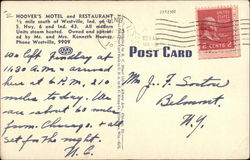 HOOVER'S MOTEL and RESTAURANT
½ mile south of Westville, Ind. at U.
S. Hwy. 6 and Ind. 43. All modern
Units steam heated. Owned and operat-
ed by Mr. and Mrs. Kenneth Hoover.
Phone Westville, 9909
AAA
POST CARD
2 CENTS 2
Left Findlay at
11:30 A.M. arrived
here at 6 P.M. 210
miles today. We
are about 60 miles
from Chicago &
set for the night.
H.C.
Mr. J. F. Sortore
Belmont,
N.Y.